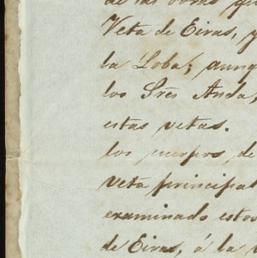 de las obras que
Veta de Eiras, y
la Loba; aunq
los Sres Anda,
estas vetas.
los cuerpos de
veta principal
examinado estos
de Eiras, ó la v